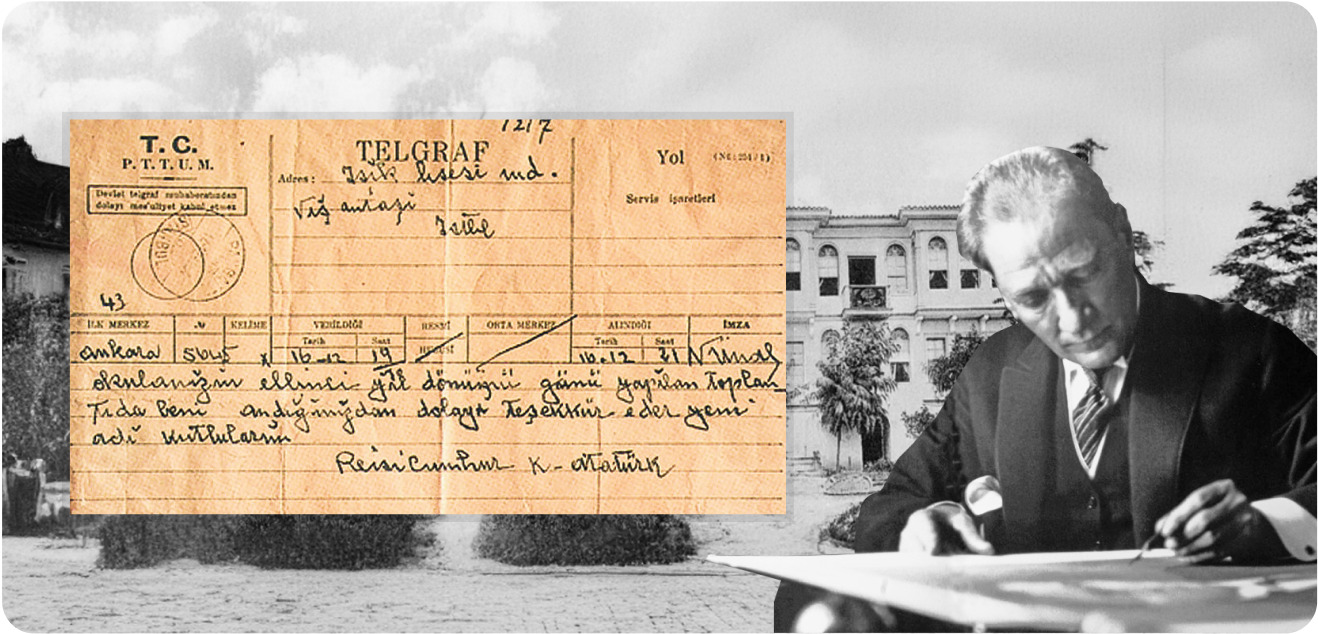 1217
T. C.
P. T. T. U. M.
Devlet telgraf muhaberatından
dolayı mes'uliyet kabul etmez
TELGRAF
Adres : Işık lisesi md.
Nişantaşı
İstbl
Yol
Servis işaretleri
43
İLK MERKEZ № KELİME VERİLDİĞİ RESMÎ ORTA MERKEZ ALINDIĞI İMZA
Tarih Saat HUSUSİ Tarih Saat
ankara 5645 16-12 19 16-12 21
okulanızın ellinci yıl dönümü günü yapılan toplan
tıda beni andığınızdan dolayı teşekkür eder yeni
adı kutlularım
Reisicumhur K. Atatürk